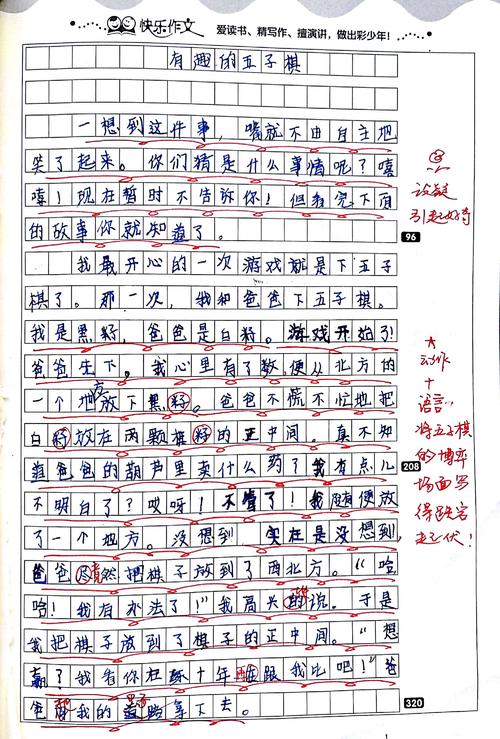 快乐作文 爱读书、精写作、擅演讲，做出彩少年！
有趣的五子棋
一想到这件事，嘴就不由自主地
笑了起来。你们猜是什么事情呢？嘻
嘻！现在暂时不告诉你！但看完下面
的故事你就知道了。
96
设疑
引起好奇
我最开心的一次游戏就是下五子
棋了。那一次，我和爸爸下五子棋。
我是黑籽，爸爸是白籽。游戏开始了！
爸爸先下。我心里有了数，便从北方的
一个地方放下黑籽。爸爸不慌不忙地把
白籽放在两颗棋籽的正中间。真不知
道爸爸的葫芦里卖什么药？我有点儿
208
不明白了？哎呀！不管了！我随便放
了一个地方。没想到，实在是没想到，
爸爸竟然把棋子放到了西北方。“哈
哈！我有办法了！”我高兴的说。于是
我把棋子放到了棋子的正中间。“想
赢？我看你在练十年再跟我比吧！”爸
爸我的拿下去。
320
动作
+
语言，
将五子棋
的博弈
场面写
得跌宕
起伏！